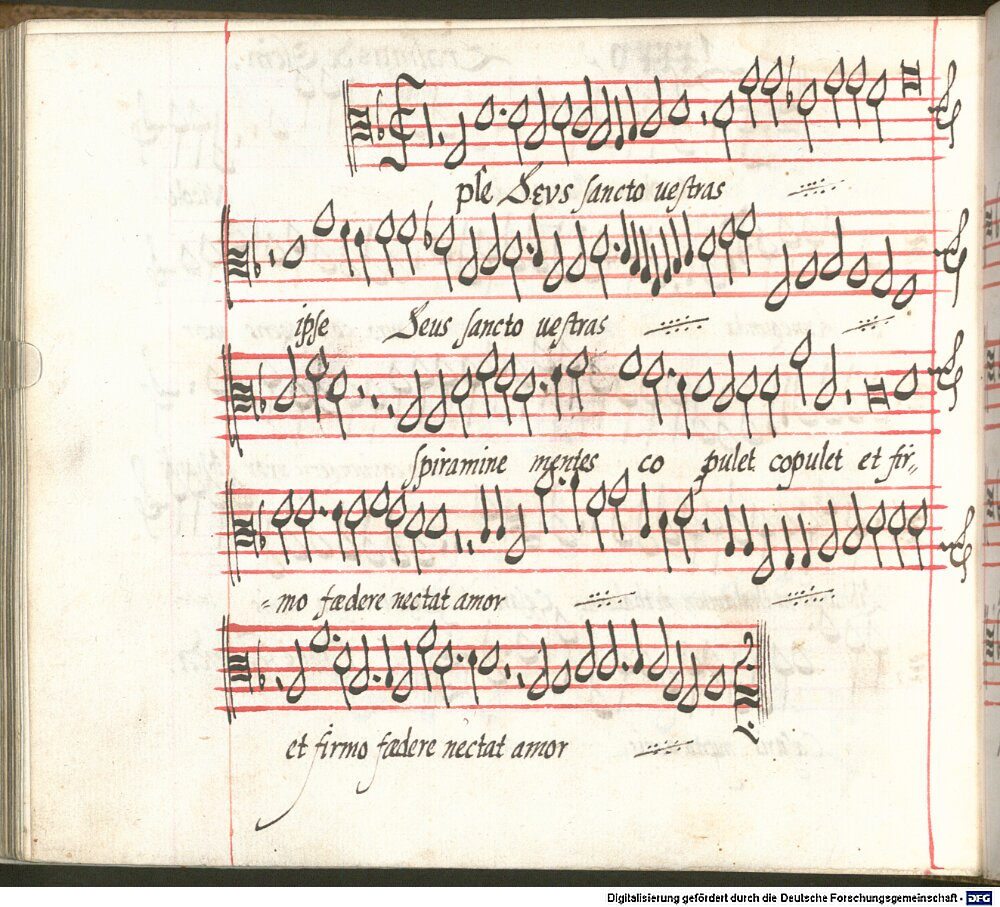 ple Deus sancto vestras
ipse Deus sancto vestras
spiramine mentes co pulet copulet et fir„
=mo fædere nectat amor
et firmo fædere nectat amor
Digitalisierung gefördert durch die Deutsche Forschungsgemeinschaft - DFG